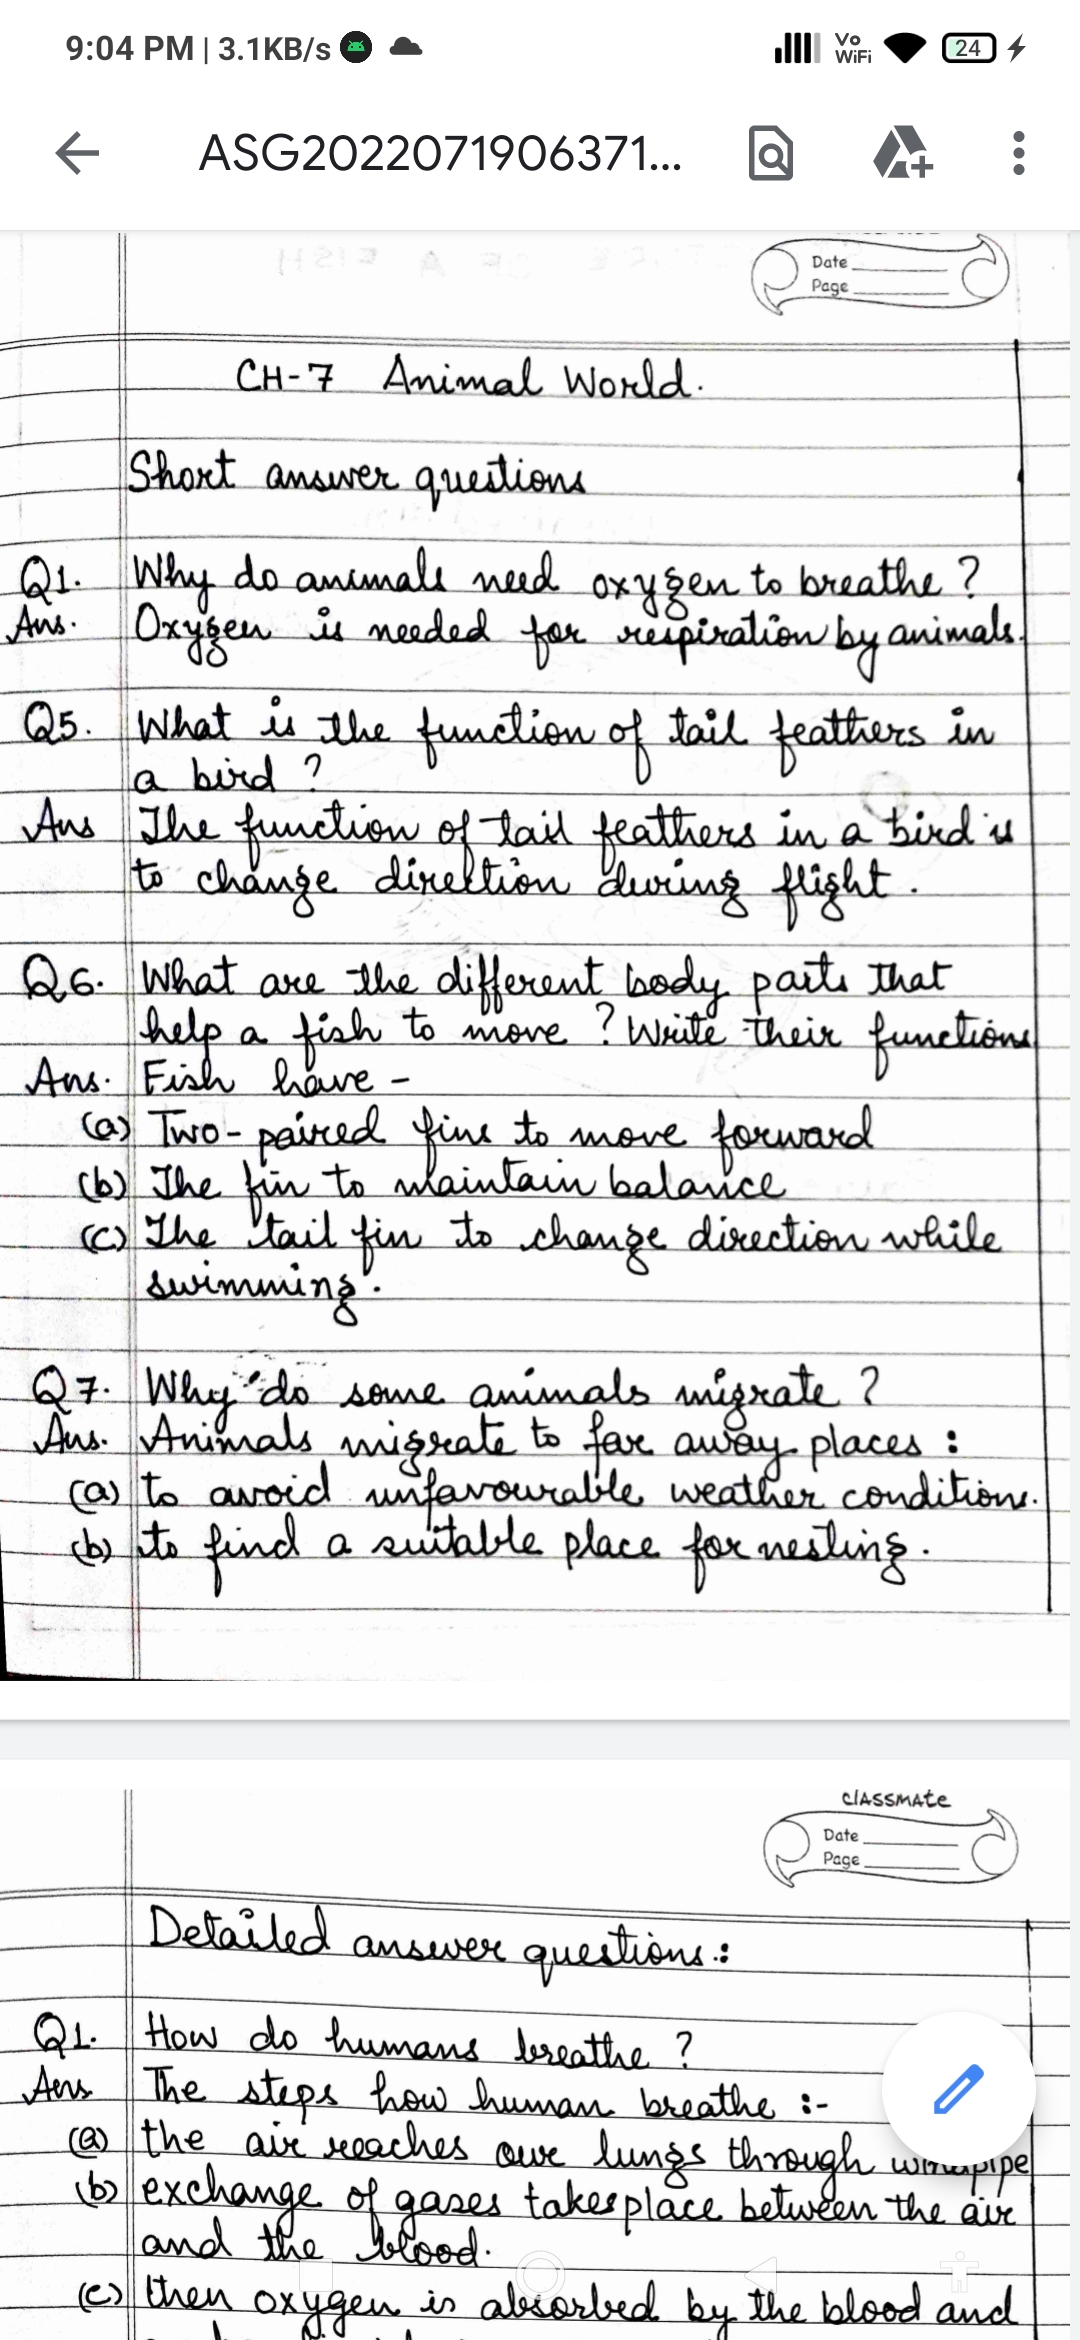 9:04 PM | 3.1KB/s
Vo WiFi 24
ASG2022071906371...
Date
Page
CH-7 Animal World.
Short answer questions
Q1. Why do animals need oxygen to breathe ?
Ans. Oxygen is needed for respiration by animals.
Q5. What is the function of tail feathers in
a bird ?
Ans The function of tail feathers in a bird is
to change direction during flight.
Q6. What are the different body parts that
help a fish to move ? Write their functions
Ans. Fish have -
(a) Two-paired fins to move forward
(b) The fin to maintain balance
(c) The tail fin to change direction while
swimming.
Q7. Why do some animals migrate ?
Ans. Animals migrate to far away places :
(a) to avoid unfavourable weather conditions.
(b) to find a suitable place for nesting.
classmate
Date
Page
Detailed answer questions :
Q1. How do humans breathe ?
Ans The steps how human breathe :-
(a) the air reaches our lungs through windpipe
(b) exchange of gases takes place between the air
and the blood.
(c) then oxygen is absorbed by the blood and